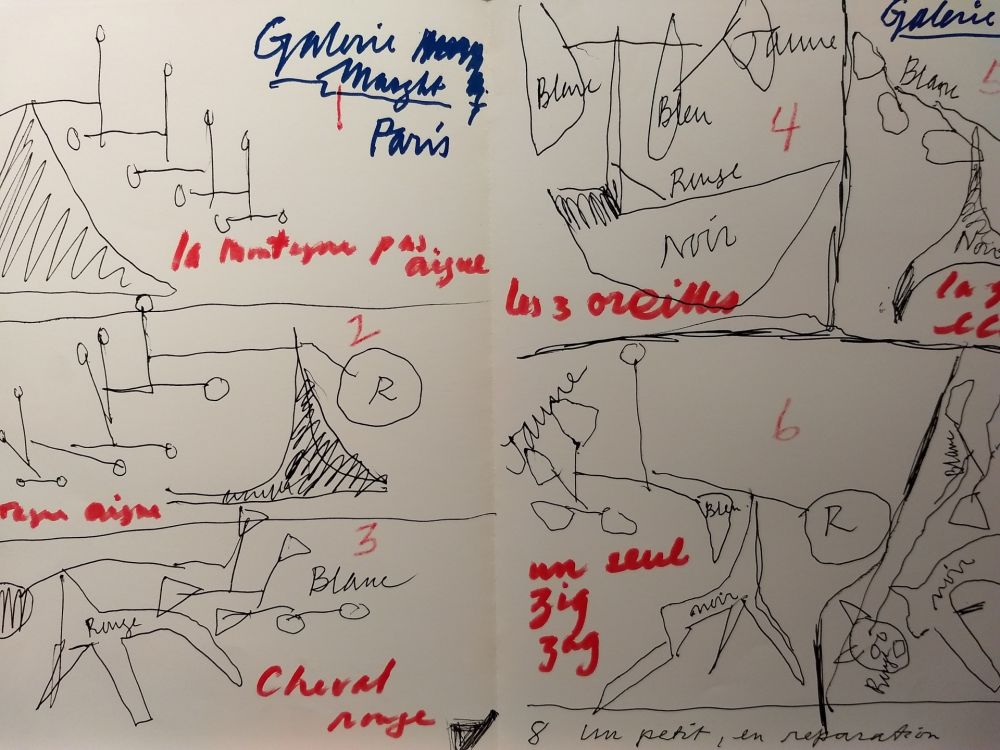 Galerie
Maeght
Paris
1
la montagne pas
aigue
2
R
aigue
3
Blanc
Rouge
Cheval
rouge
Blanc
Bleu
Jaune
4
Rouge
Noir
les 3 oreilles
Galerie
5
Blanc
Noir
la 3
6
Jaune
Bleu
R
noir
un seul
zig
zag
Blanc
noir
Rouge
8 un petit, en reparation